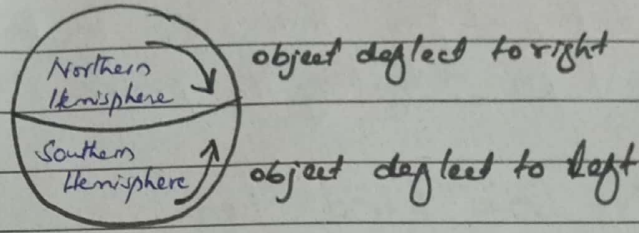 Northern
Hemisphere
object deflect to right
Southern
Hemisphere
object deflect to left